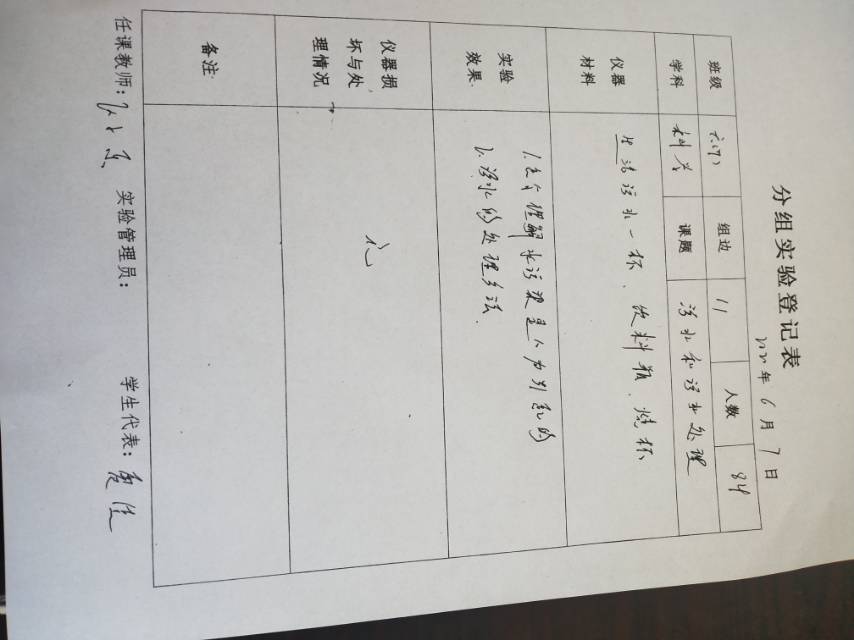 分组实验登记表
年 6 月 7 日
班级 六(7) 组边 11 人数 84
学科 科学 课题 污水和污水处理
仪器材料 生活污水一杯、饮料瓶、烧杯
实验效果 1.学会理解水污染是人为引起的
2.污水的处理方法.
仪器损坏与处理情况
备注
任课教师: 实验管理员: 学生代表: